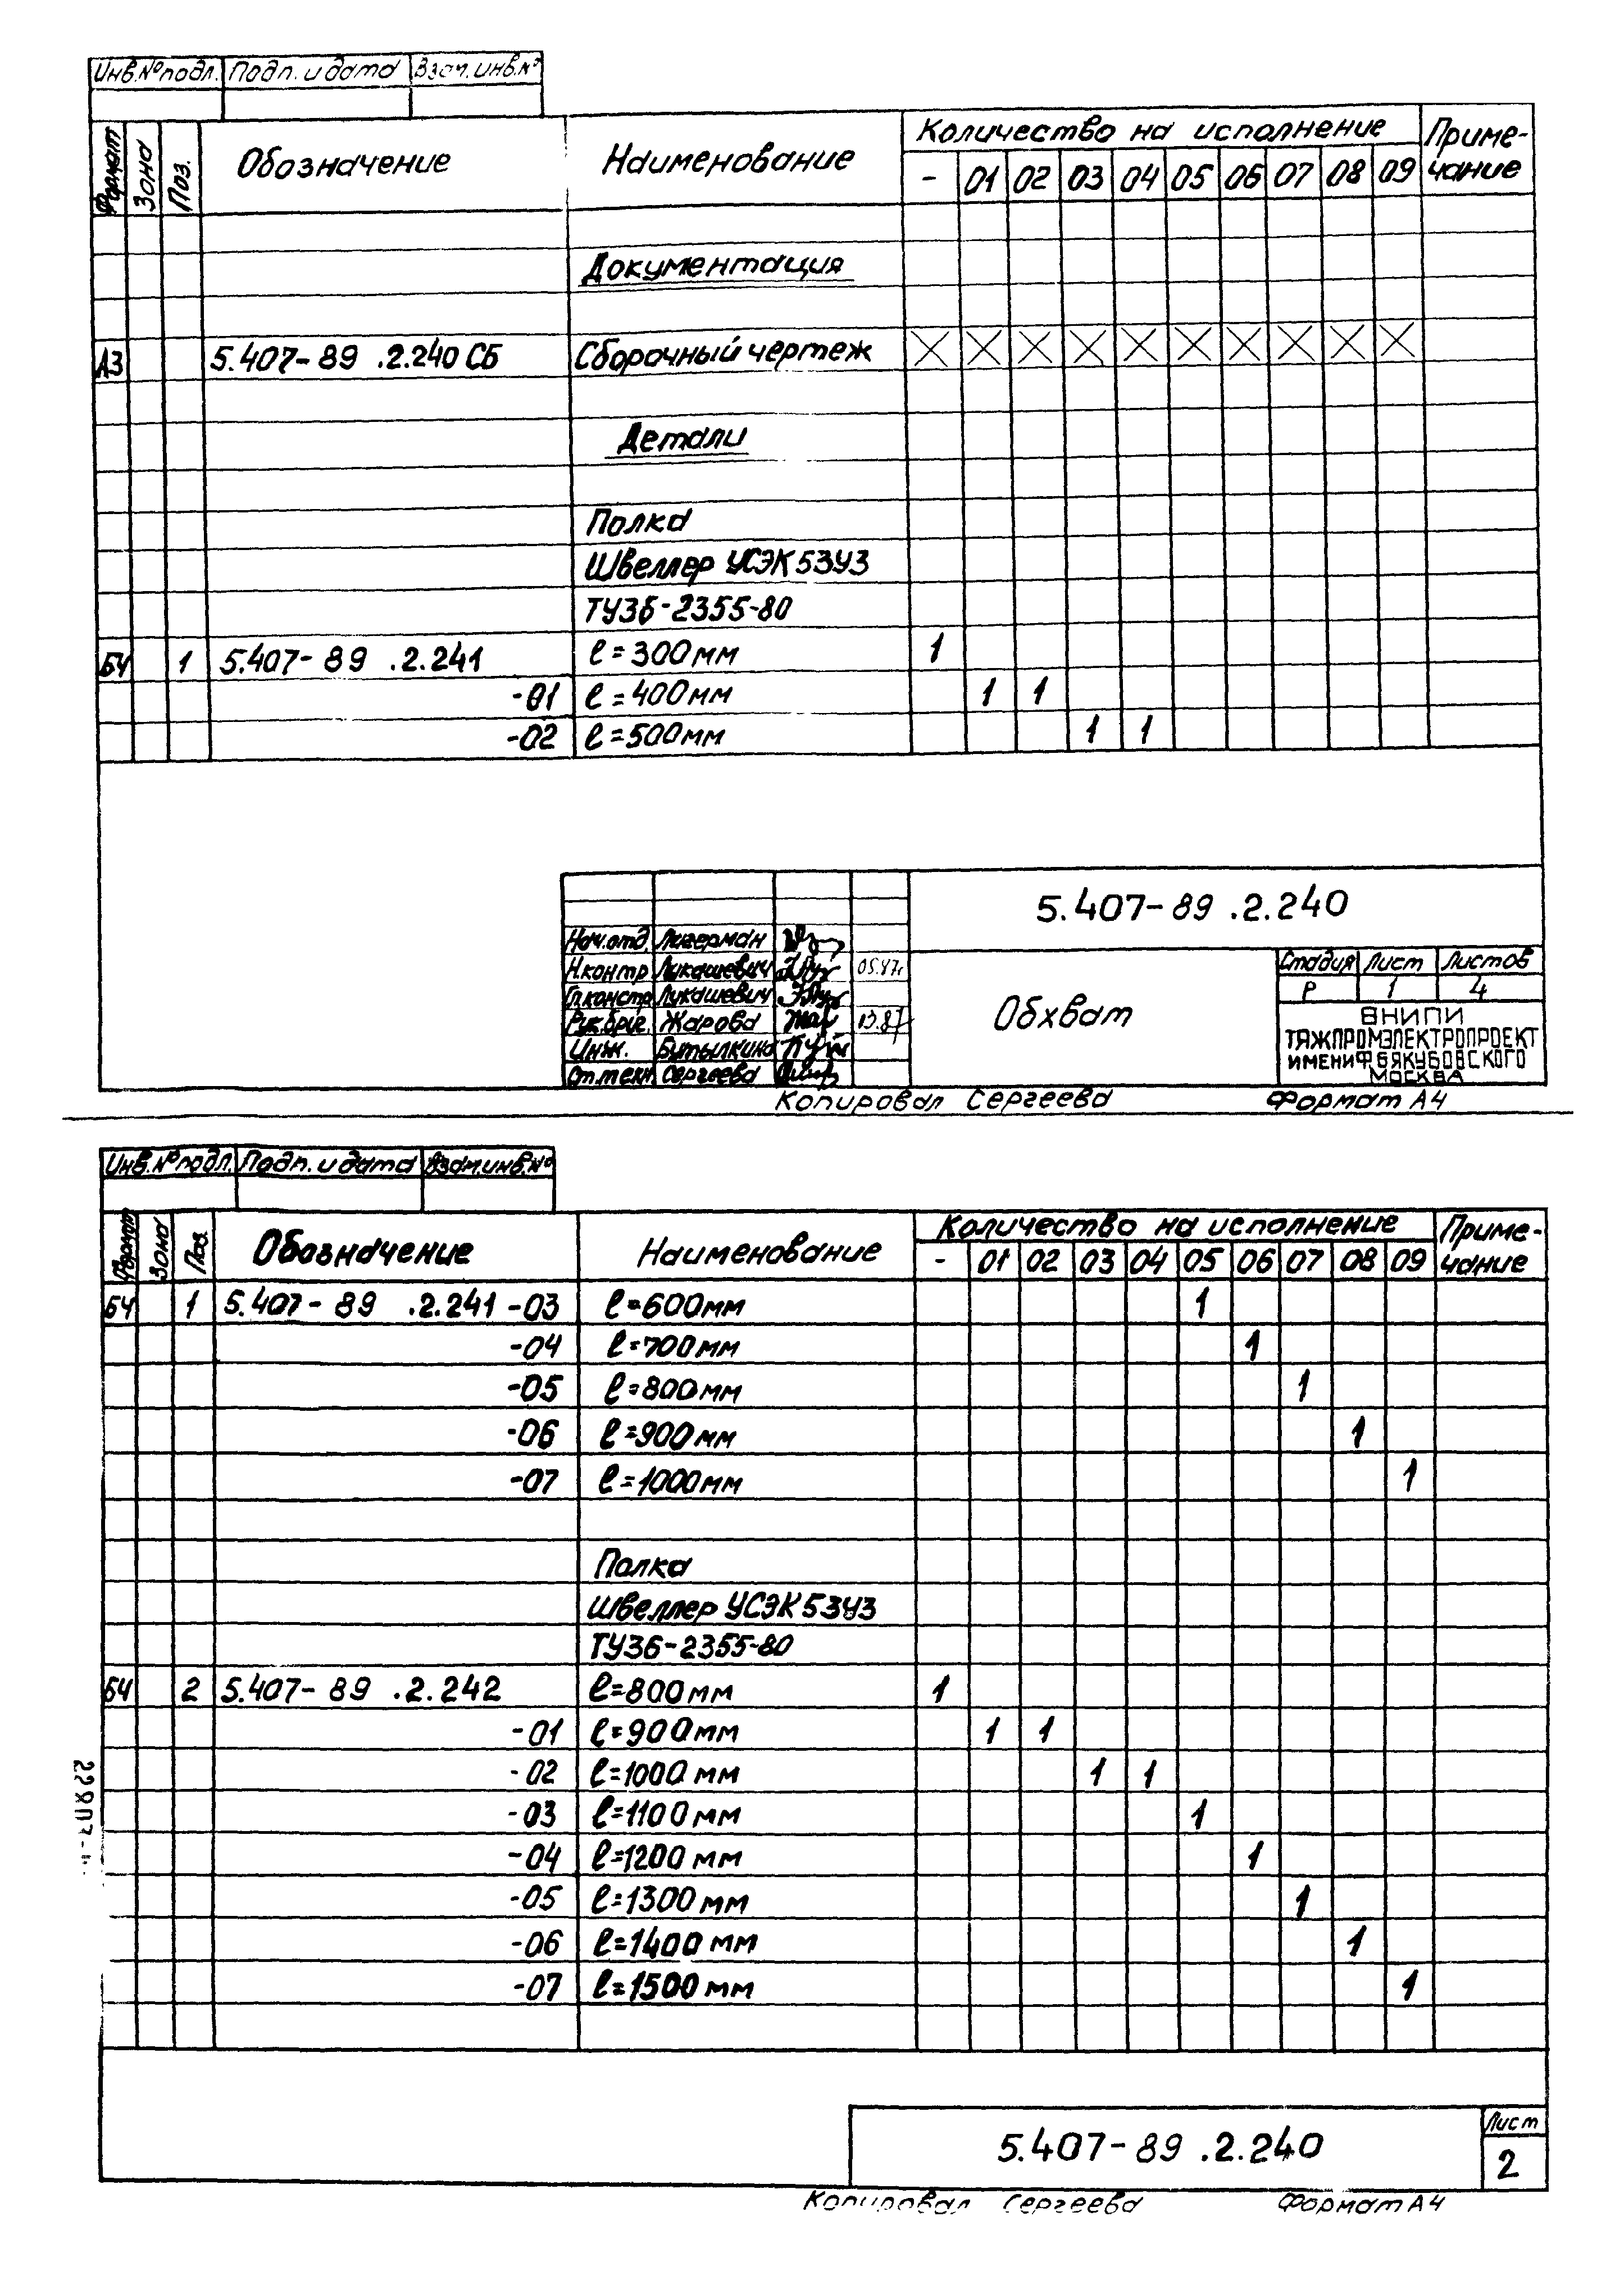 Инв.№подл. Подп. и дата Взам. инв.№
Формат Зона Поз. Обозначение Наименование Количество на исполнение Приме-чание
- 01 02 03 04 05 06 07 08 09
Документация
А3 5.407-89 .2.240 СБ Сборочный чертеж
Детали
Полка
Швеллер УСЭК 53У3
ТУ36-2355-80
БЧ 1 5.407-89 .2.241 ℓ=300мм 1
-01 ℓ=400мм 1 1
-02 ℓ=500мм 1 1
5.407-89 .2.240
Нач.отд. Лигерман
Н.контр Лукашевич
Гл.констр Лукашевич
Рук.бриг. Жарова
Инж. Бутылкина
Ст.техн Сергеева
Обхват
Стадия Лист Листов
Р 1 4
ВНИПИ
ТЯЖПРОМЭЛЕКТРОПРОЕКТ
ИМЕНИ Ф.Б.ЯКУБОВСКОГО
МОСКВА
Копировал Сергеева Формат А4
Инв.№подл. Подп. и дата Взам.инв.№
Формат Зона Поз. Обозначение Наименование Количество на исполнение Приме-чание
- 01 02 03 04 05 06 07 08 09
БЧ 1 5.407-89 .2.241-03 ℓ=600мм 1
-04 ℓ=700мм 1
-05 ℓ=800мм 1
-06 ℓ=900мм 1
-07 ℓ=1000мм 1
Полка
Швеллер УСЭК 53У3
ТУ36-2355-80
БЧ 2 5.407-89 .2.242 ℓ=800мм 1
-01 ℓ=900мм 1 1
-02 ℓ=1000мм 1 1
-03 ℓ=1100мм 1
-04 ℓ=1200мм 1
-05 ℓ=1300мм 1
-06 ℓ=1400мм 1
-07 ℓ=1500мм 1
5.407-89 .2.240
Лист
2
Копировал Сергеева Формат А4